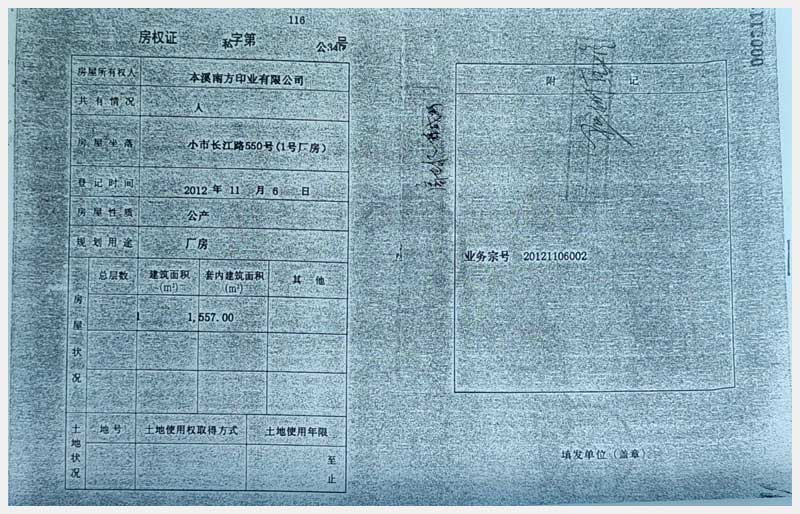 116
房权证 私字第 公345号
房屋所有权人 本溪南方印业有限公司
共有情况 人
房屋坐落 小市长江路550号(1号厂房)
登记时间 2012 年 11 月 6 日
房屋性质 公产
规划用途 厂房
房屋状况 总层数 建筑面积(m²) 套内建筑面积(m²) 其他
1 1,557.00
土地状况 地号 土地使用权取得方式 土地使用年限
至
止
附记
业务宗号 20121106002
填发单位（盖章）